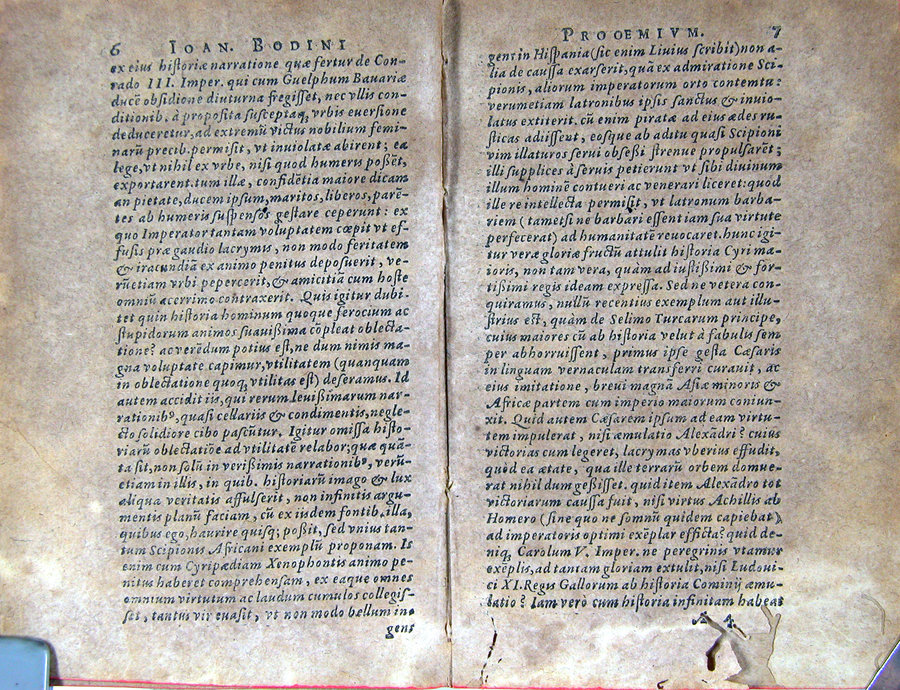 6 IOAN. BODINI
ex eius historiæ narratione quæ fertur de Con-
rado III. Imper. qui cum Guelphum Bauariæ
ducē obsidione diuturna fregisset, nec vllis con-
ditionib. à proposita suscepta&#44; vrbis euersione
deduceretur, ad extremū victus nobilium femi-
narū precib. permisit, vt inuiolatæ abirent; ea
lege, vt nihil ex vrbe, nisi quod humeris possēt,
exportarent. tum illæ, confidētia maiore dicam
an pietate, ducem ipsum, maritos, liberos, parē-
tes ab humeris suspensos gestare ceperunt: ex
quo Imperator tantam voluptatem cœpit vt ef-
fusis præ gaudio lacrymis, non modo feritatem
& iracundiā ex animo penitus deposuerit, ve-
rūetiam vrbi pepercerit, & amicitiā cum hoste
omniū acerrimo contraxerit. Quis igitur dubi-
tet quin historia hominum quoque ferocium ac
stupidorum animos suauissima cōpleat oblecta-
tione? ac verēdum potius est, ne dum nimis ma-
gna voluptate capimur, vtilitatem (quanquam
in oblectatione quoq, vtilitas est) deseramus. Id
autem accidit iis, qui rerum leuissimarum nar-
rationibꝰ, quasi cellariis & condimentis, negle-
cto solidiore cibo pascūtur. Igitur omissa histo-
riarū oblectatiōe ad vtilitatē relabor; quæ quā-
ta sit, non solū in verissimis narrationibꝰ, verū-
etiam in illis, in quib. historiarū imago & lux
aliqua veritatis affulserit, non infinitis argu-
mentis planū faciam, cū ex iisdem fontib. illa,
quibus ego, haurire quisq; possit, sed vnius tan-
tum Scipionis Africani exemplū proponam. Is
enim cum Cyripædiam Xenophontis animo pe-
nitus haberet comprehensam, ex eaque omnes
omnium virtutum ac laudum cumulos collegis-
set, tantus vir euasit, vt non modo bellum in-
gens
PROOEMIVM. 7
gens in Hispania (sic enim Liuius scribit) non a-
lia de caussa exarserit, quā ex admiratione Sci-
pionis, aliorum imperatorum orto contemtu:
verumetiam latronibus ipsis sanctus & inuio-
latus extiterit. cū enim piratæ ad eius ædes ru-
sticas adiissent, eosque ab aditu quasi Scipioni
vim illaturos serui obsessi strenue propulsarēt;
illi supplices à seruis petierunt vt sibi diuinum
illum hominē contueri ac venerari liceret: quod
ille re intellecta permisit, vt latronum barba-
riem (tametsi ne barbari essent iam sua virtute
perfecerat) ad humanitatē reuocaret. hunc igi-
tur veræ gloriæ fructū attulit historia Cyri ma-
ioris, non tam vera, quàm ad iustissimi & for-
tissimi regis ideam expressa. Sed ne vetera con-
quiramus, nullū recentius exemplum aut illu-
strius est, quàm de Selimo Turcarum principe,
cuius maiores cū ab historia velut à fabulis sem
per abhorruissent, primus ipse gesta Cæsaris
in linguam vernaculam transferri curauit, ac
eius imitatione, breui magnā Asiæ minoris &
Africæ partem cum imperio maiorum coniun-
xit. Quid autem Cæsarem ipsum ad eam virtu-
tem impulerat, nisi æmulatio Alexādri? cuius
victorias cum legeret, lacrymas vberius effudit,
quòd ea ætate, qua ille terrarū orbem domue-
rat nihil dum gessisset. quid item Alexādro tot
victoriarum caussa fuit, nisi virtus Achillis ab
Homero (sine quo ne somnū quidem capiebat)
ad imperatoris optimi exēplar efficta? quid de-
niq, Carolum V. Imper. ne peregrinis vtamur
exēplis, ad tantam gloriam extulit, nisi Ludoui-
ci XI. Regis Gallorum ab historia Cominij æmu-
latio? Iam verò cum historia infinitam habeat
A 4.